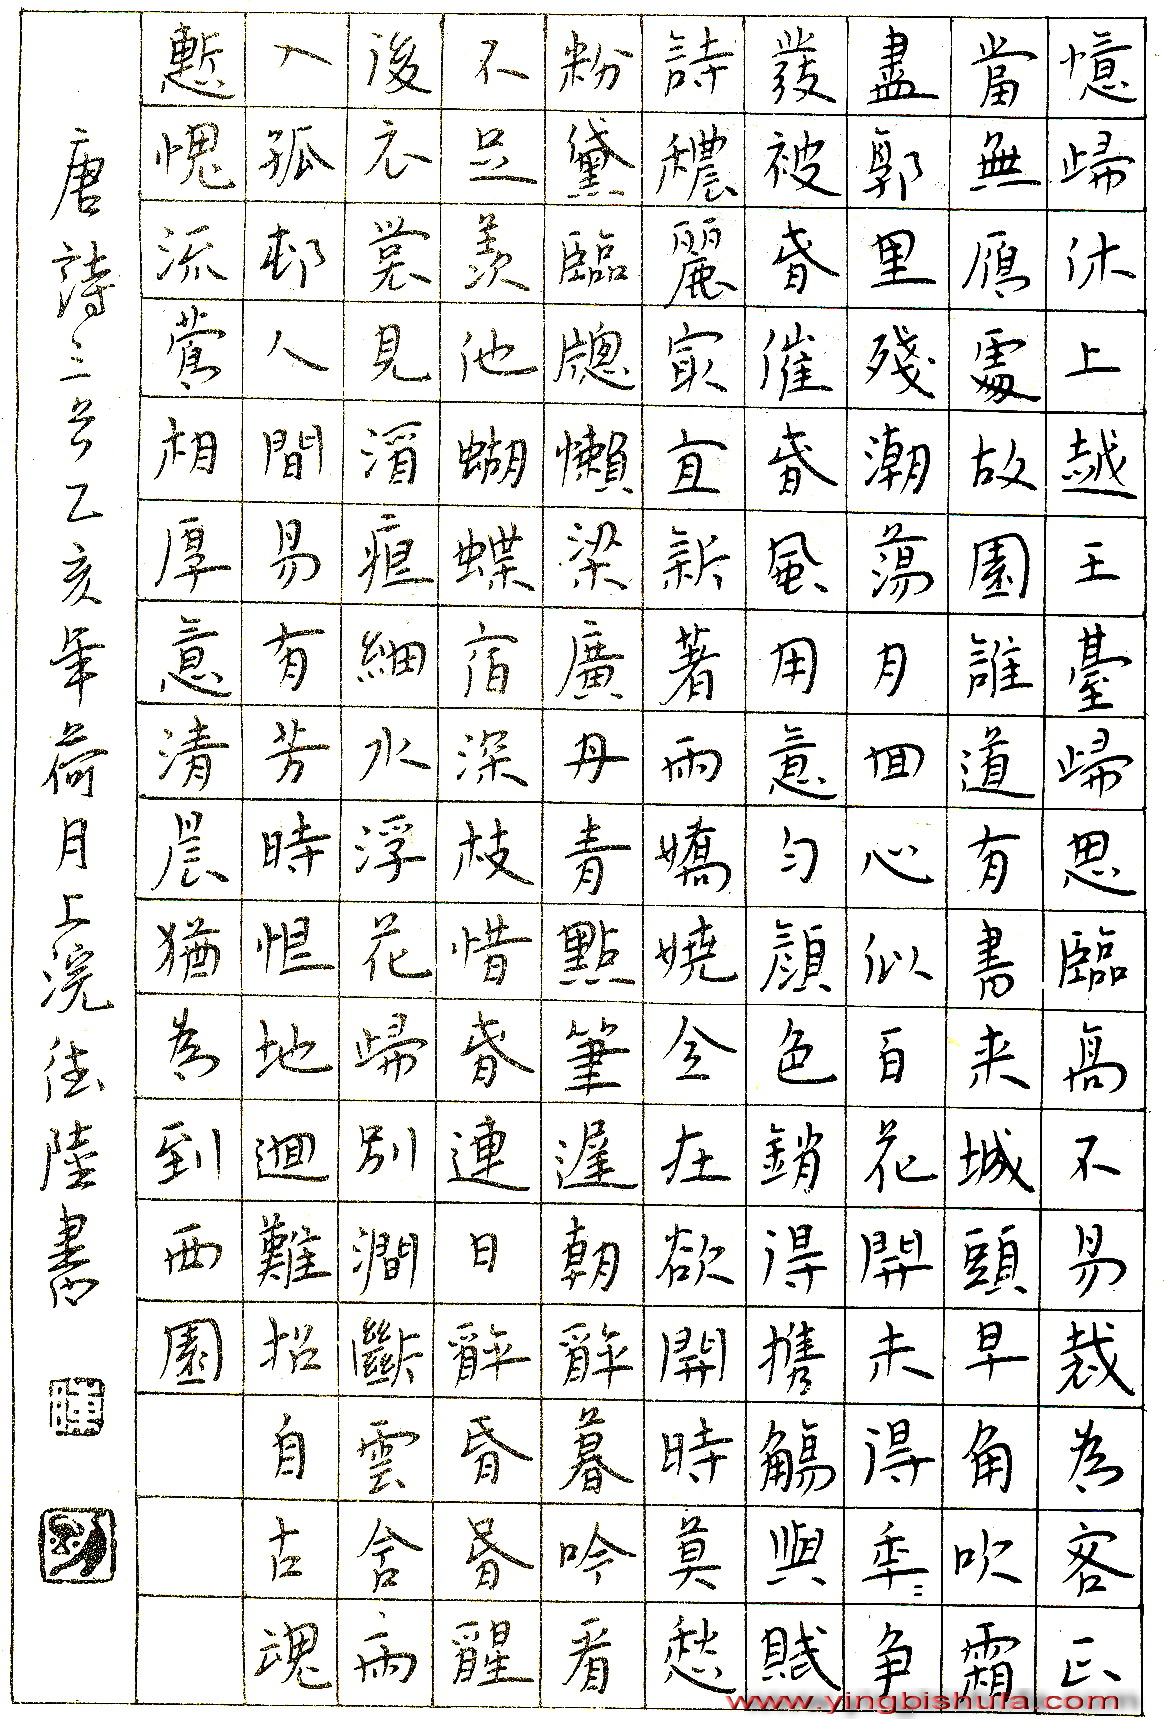 憶歸休上越王臺歸思臨高不易裁為客正
當無鴈處故園誰道有書来城頭早角吹霜
盡郭里殘潮蕩月回心似百花開未得年=争
發被春催春風用意勻顔色銷得攜觴與賦
詩穠麗最宜新著雨嬌嬈全在欲開時莫愁
粉黛臨牕懶梁廣丹青點筆遲朝醉暮吟看
不足羨他蝴蝶宿深枝惜春連日醉昏昏醒
後衣裳見酒痕細水浮花歸別澗斷雲含雨
入孤邨人間易有芳時恨地迴難招自古魂
慙愧流鶯相厚意清晨猶為到西園
唐詩三首乙亥年荷月上浣陸書
www.yingbishufa.com